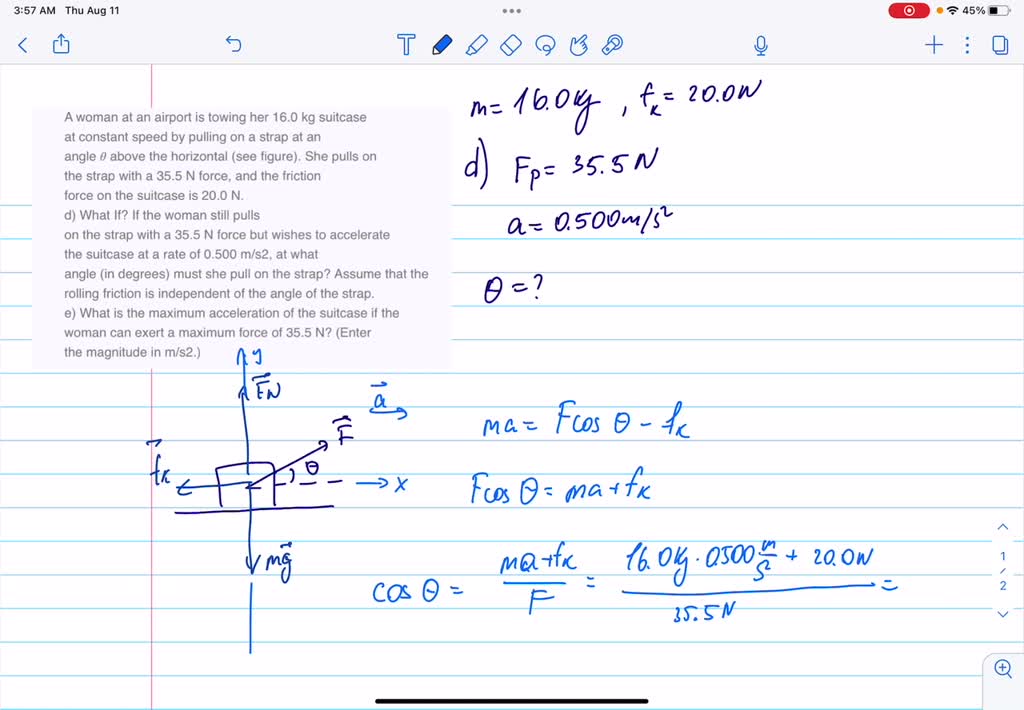 3:57 AM Thu Aug 11
45%
T
A woman at an airport is towing her 16.0 kg suitcase
at constant speed by pulling on a strap at an
angle θ above the horizontal (see figure). She pulls on
the strap with a 35.5 N force, and the friction
force on the suitcase is 20.0 N.
d) What If? If the woman still pulls
on the strap with a 35.5 N force but wishes to accelerate
the suitcase at a rate of 0.500 m/s2, at what
angle (in degrees) must she pull on the strap? Assume that the
rolling friction is independent of the angle of the strap.
e) What is the maximum acceleration of the suitcase if the
woman can exert a maximum force of 35.5 N? (Enter
the magnitude in m/s2.)
m= 16.0kg , fκ= 20.0N
d) Fp= 35.5 N
a= 0.500m/s²
θ=?
y
F⃗N
a⃗
F⃗
f⃗κ
θ
x
mg⃗
ma= Fcos θ - fκ
Fcos θ= ma+fκ
cos θ = (ma+fκ)/F = (16.0kg·0500 m/s² + 20.0N)/35.5N =
1
/
2